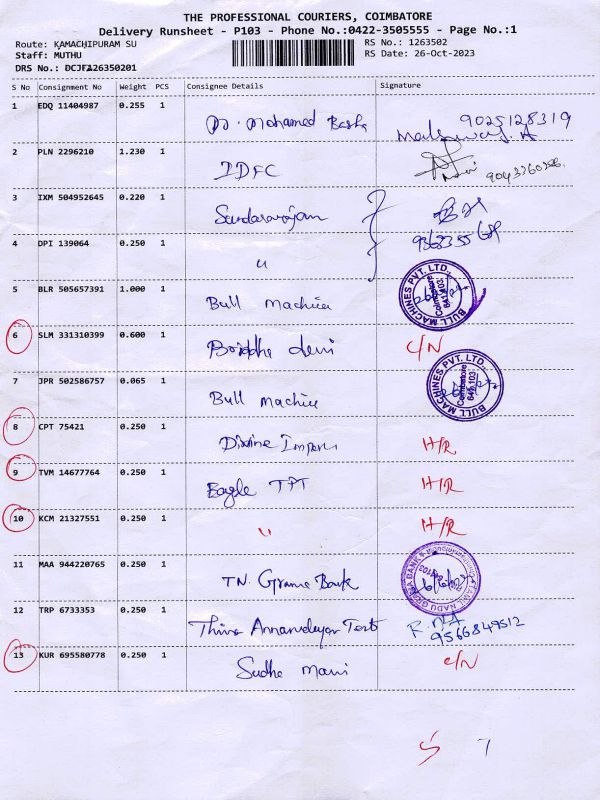 THE PROFESSIONAL COURIERS, COIMBATORE
Delivery Runsheet - P103 - Phone No.:0422-3505555 - Page No.:1
Route: KAMACHIPURAM SU RS No.: 1263502
Staff: MUTHU RS Date: 26-Oct-2023
DRS No.: DCJFA26350201
S No Consignment No Weight PCS Consignee Details Signature
1 EDQ 11404987 0.255 1 Mohamed Basha 9025128319
2 PLN 2296210 1.230 1 IDFC
3 IXM 504952645 0.220 1 Sundararajan
4 DPI 139064 0.250 1 "
5 BLR 505657391 1.000 1 Bull Machine BULL MACHINES PVT. LTD. Coimbatore 641 103
6 SLM 331310399 0.600 1 devi C/N
7 JPR 502586757 0.065 1 Bull Machine BULL MACHINES PVT. LTD. Coimbatore 641 103
8 CPT 75421 0.250 1 Divine H/R
9 TVM 14677764 0.250 1 Eagle H/R
10 KCM 21327551 0.250 1 " H/R
11 MAA 944220765 0.250 1 TN. Grama Bank TAMIL NADU GRAMA BANK
12 TRP 6733353 0.250 1 9566849512
13 KUR 695580778 0.250 1 Sudha Mani C/N
5 7